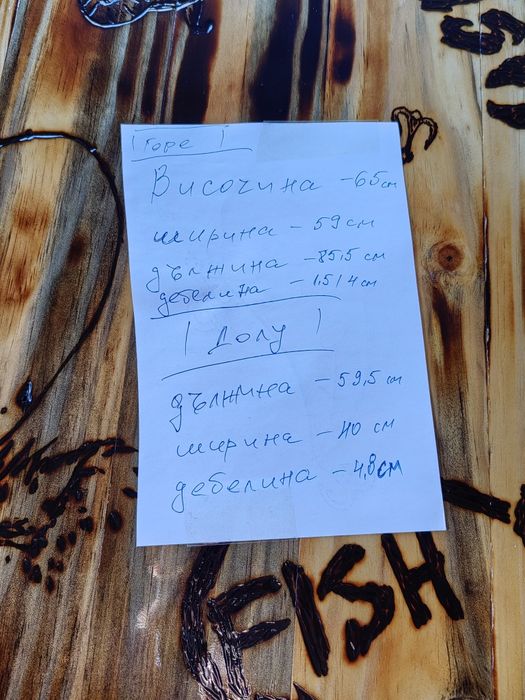 Горе
Височина - 65 см
ширина - 59 см
дължина - 85,5 см
дебелина - 1,5 / 4 см
Долу
дължина - 59,5 см
ширина - 40 см
дебелина - 4,8 см
FISH